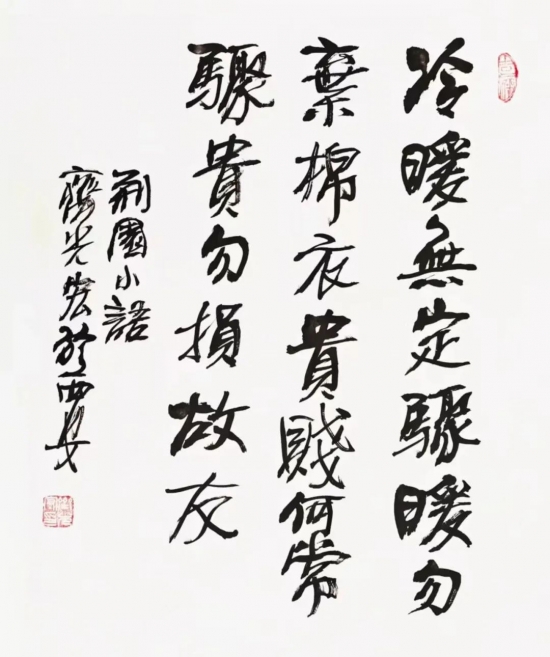 冷暖無定驟暖勿
棄棉衣貴賤何常
驟貴勿損故友
荊園小語
光宏於西安